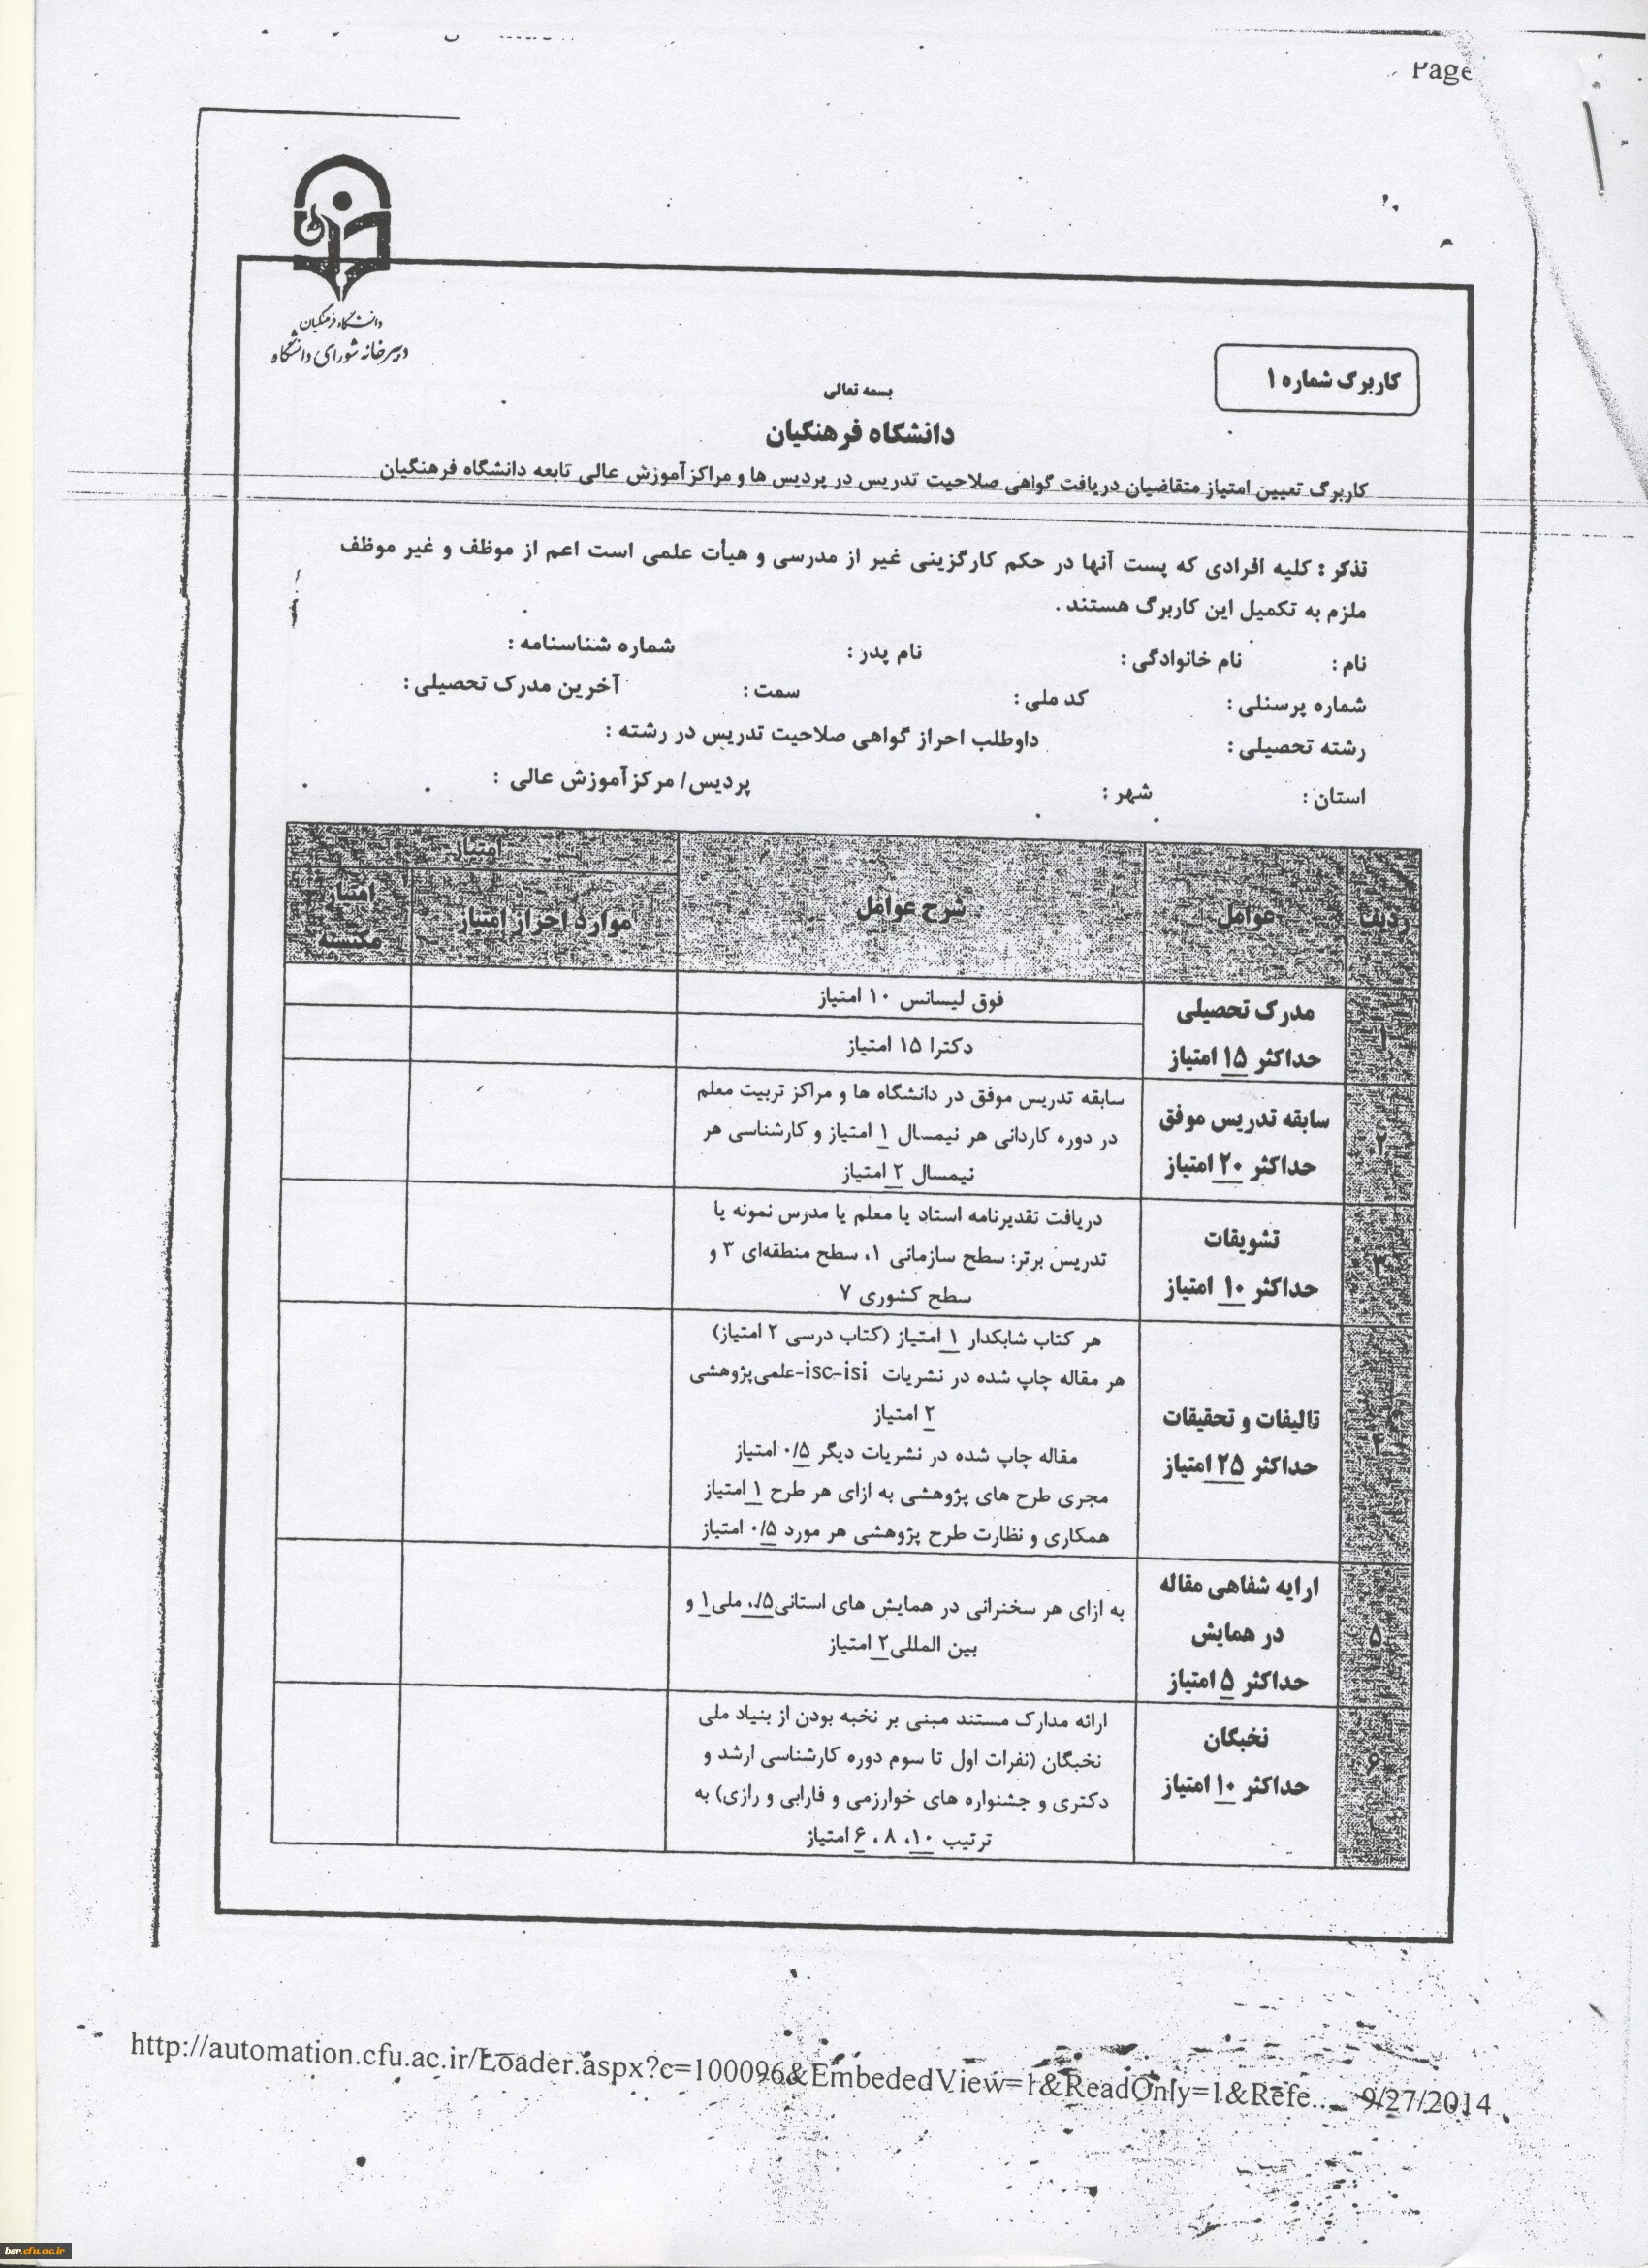 Page
دانشگاه فرهنگیان
دبیرخانه شورای دانشگاه
کاربرگ شماره ۱
بسمه تعالی
دانشگاه فرهنگیان
کاربرگ تعیین امتیاز متقاضیان دریافت گواهی صلاحیت تدریس در پردیس ها و مراکز آموزش عالی تابعه دانشگاه فرهنگیان
تذکر : کلیه افرادی که پست آنها در حکم کارگزینی غیر از مدرسی و هیأت علمی است اعم از موظف و غیر موظف
ملزم به تکمیل این کاربرگ هستند .
نام : نام خانوادگی : نام پدر : شماره شناسنامه :
شماره پرسنلی : کد ملی : سمت : آخرین مدرک تحصیلی :
رشته تحصیلی : داوطلب احراز گواهی صلاحیت تدریس در رشته :
استان : شهر : پردیس/ مرکز آموزش عالی :
ردیف عوامل شرح عوامل امتیاز
موارد احراز امتیاز امتیاز
مکتسبه
۱
مدرک تحصیلی
حداکثر ۱۵ امتیاز
فوق لیسانس ۱۰ امتیاز
دکترا ۱۵ امتیاز
۲
سابقه تدریس موفق
حداکثر ۲۰ امتیاز
سابقه تدریس موفق در دانشگاه ها و مراکز تربیت معلم
در دوره کاردانی هر نیمسال ۱ امتیاز و کارشناسی هر
نیمسال ۲ امتیاز
۳
تشویقات
حداکثر ۱۰ امتیاز
دریافت تقدیرنامه استاد یا معلم یا مدرس نمونه یا
تدریس برتر: سطح سازمانی ۱، سطح منطقه‌ای ۳ و
سطح کشوری ۷
۴
تالیفات و تحقیقات
حداکثر ۲۵ امتیاز
هر کتاب شابکدار ۱ امتیاز (کتاب درسی ۲ امتیاز)
هر مقاله چاپ شده در نشریات isc-isi-علمی‌پژوهشی
۲ امتیاز
مقاله چاپ شده در نشریات دیگر ۰/۵ امتیاز
مجری طرح های پژوهشی به ازای هر طرح ۱ امتیاز
همکاری و نظارت طرح پژوهشی هر مورد ۰/۵ امتیاز
۵
ارایه شفاهی مقاله
در همایش
حداکثر ۵ امتیاز
به ازای هر سخنرانی در همایش های استانی ۰/۵، ملی ۱ و
بین المللی ۲ امتیاز
۶
نخبگان
حداکثر ۱۰ امتیاز
ارائه مدارک مستند مبنی بر نخبه بودن از بنیاد ملی
نخبگان (نفرات اول تا سوم دوره کارشناسی ارشد و
دکتری و جشنواره های خوارزمی و فارابی و رازی) به
ترتیب ۱۰، ۸، ۶ امتیاز
http://automation.cfu.ac.ir/Loader.aspx?c=100096&EmbededView=1&ReadOnly=1&Refe... 9/27/2014
bsr.cfu.ac.ir